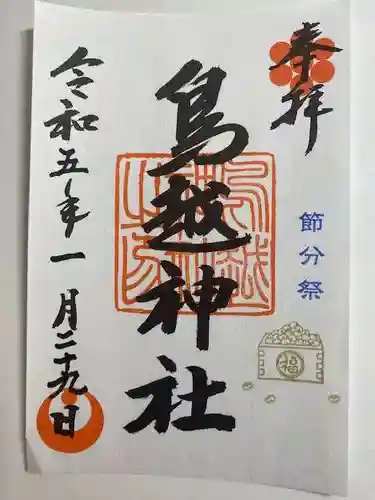 奉拝
節分祭
福
鳥越神社
令和五年一月二十九日